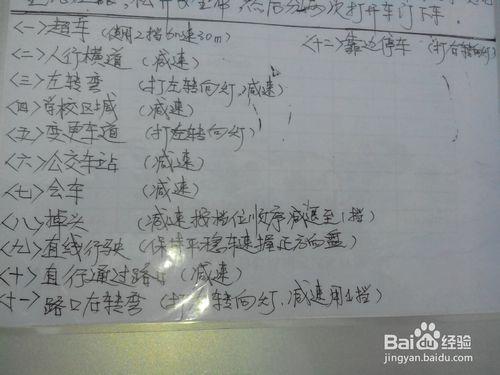 然后分两次打开车门下车.
<一>超车 (使用2挡加速30m)
<十二>靠边停车 (打右转向灯)
<二>人行横道 (减速)
<三>左转弯 (打左转向灯,减速)
<四>学校区域 (减速)
<五>变更车道 (打左转向灯)
<六>公交车站 (减速)
<七>会车 (减速)
<八>掉头 (减速按档位顺序减退至1挡)
<九>直线行驶 (保持平稳车速握正方向盘)
<十>直行通过路口 (减速)
<十一>路口左转弯 (打 转向灯,减速用2挡)
Bai经验
jingyan.baidu.com